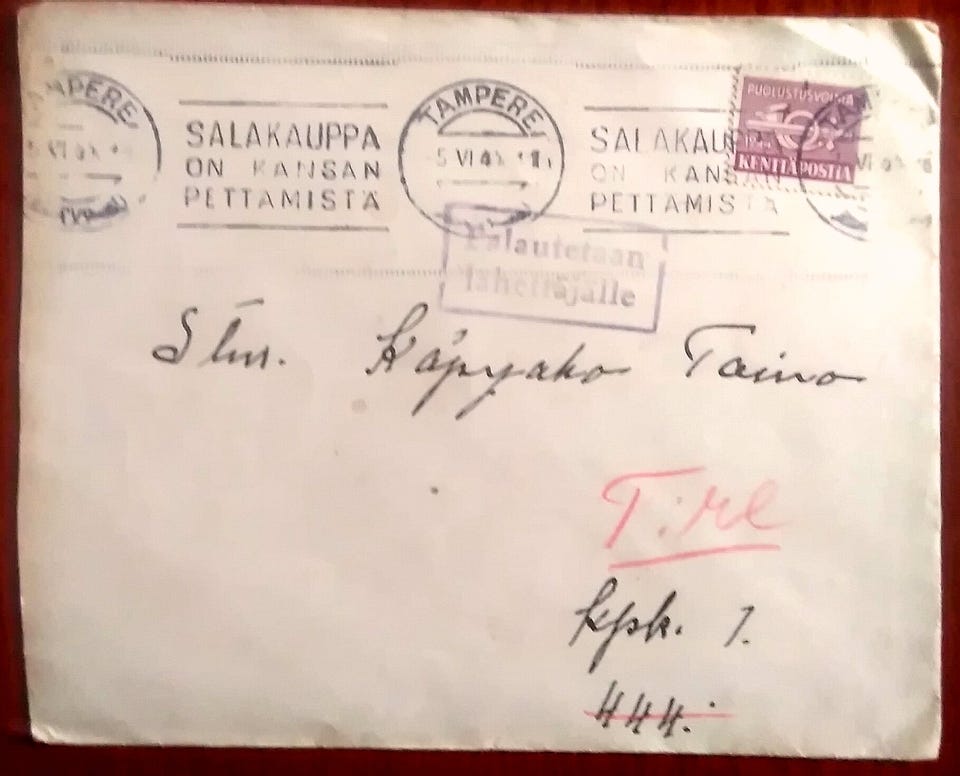 TAMPERE
SALAKAUPPA
ON KANSAN
PETTAMISTA
TAMPERE
5 VI
SALAKAUPPA
ON KANSAN
PETTAMISTA
PUOLUSTUSVOIMAT
KENTTÄPOSTIA
Palautetaan
lähettäjälle
Stm. Käpyaho Taino
kpk. 7.
444.